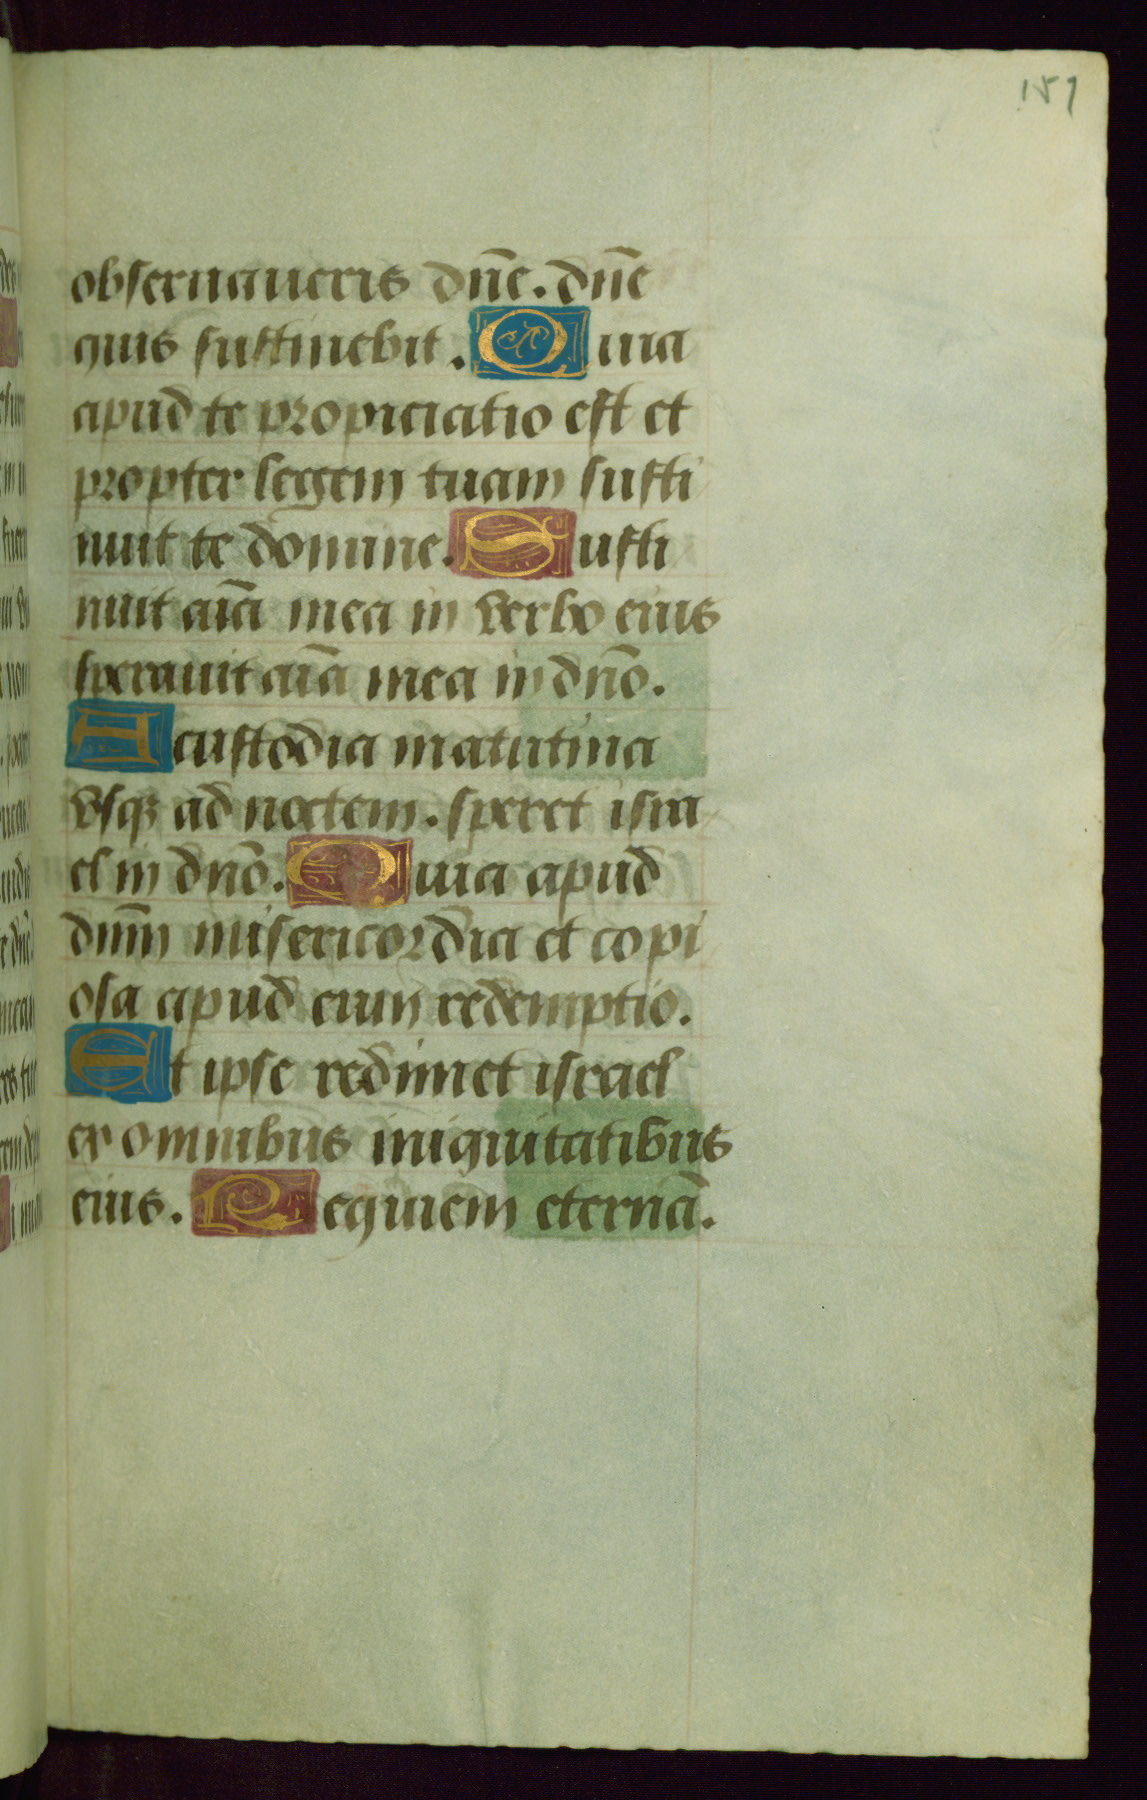 157
obseruaueris dñe. dñe
quis sustinebit. Quia
apud te propiciatio est et
propter legem tuam susti
nuit te domine. Susti
nuit aīa mea in verbo eius
sperauit aīa mea in dño.
A custodia matutina
vsqꝫ ad noctem. speret isra
el in dño. Quia apud
dnm̄ misericordia et copi
osa apud eum redemptio.
Et ipse redimet israel
ex omnibus iniquitatibus
eius. Requiem eternā.